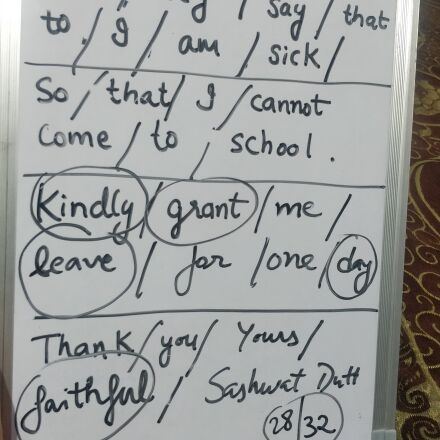 / say / that
to / I / am / sick /
So / that / I / cannot
come / to / school.
Kindly / grant / me /
leave / for / one / day
Thank / you / Yours /
faithful / Sashwat Dutt
28/32